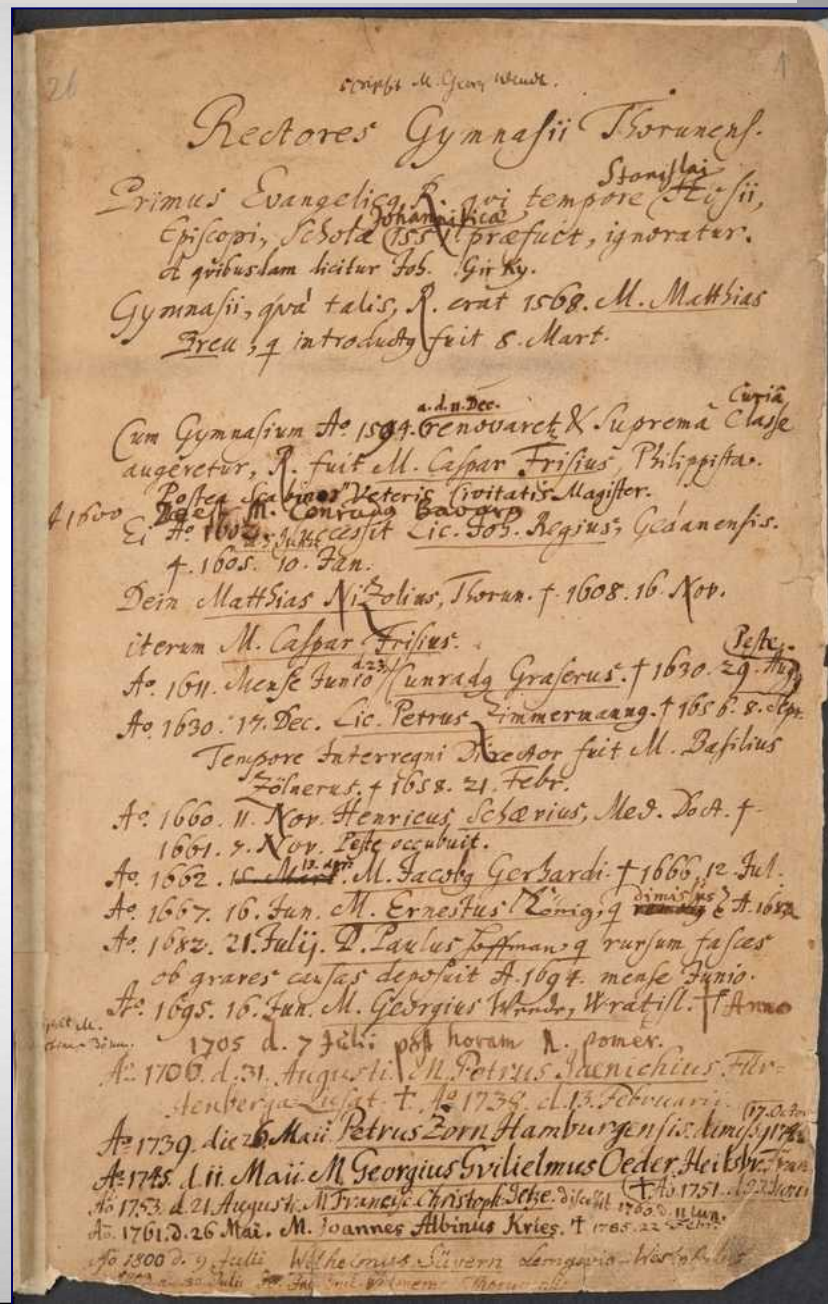 26
1
scripsit M. Georg Wende.
Rectores Gymnasii Thorunens.
Stanislai
Primus Evangelicq R. qvi tempore Hosii,
Johannitica
Episcopi, Scholæ 155 præfuit, ignoratur.
à qvibusdam dicitur Joh. Girky.
Gymnasii, qvà talis, R. erat 1568. M. Matthias
Breu, q introductq fuit 8. Mart.
a. d. 11. Dec. Curiâ
Cum Gymnasium Aº 1594. renovaret & Supremâ Classe
augeretur, R. fuit M. Caspar Frisius, Philippista.
Postea Scabinor Veteris Civitatis Magister.
† 1600 M. Conradq Bavarq
Ei Aº 1602 cessit Lic. Joh. Regius, Gedanensis.
†. 1605. 10. Jan.
Dein Matthias Nizolius, Thorun. †. 1608. 16. Nov.
iterum M. Caspar Frisius.
d. 23. Peste.
Aº. 1611. Mense Junio Cunradq Graserus. † 1630. 29. Aug
Aº. 1630. 17. Dec. Lic. Petrus Zimmermannq. † 1656. 8. Sept.
Tempore Interregni Director fuit M. Basilius
Zölnerus. † 1658. 21. Febr.
Aº. 1660. 11. Nov. Henricus Schævius, Med. Doct. †.
1661. 7. Nov. Peste occubuit.
Aº. 1662. 15. Mart. M. Jacobq Gerhardi. † 1666. 12. Jul.
Aº. 1667. 16. Jun. M. Ernestus König, q dimissus è A. 1682
Aº. 1682. 21. Julij. D. Paulus Hoffman, q rursum fasces
ob graves causas deposuit A. 1694. mense Junio.
Aº. 1695. 16. Jun. M. Georgius Wende, Wratisl. † Anno
1705 d. 7 Julii post horam k. pomer.
Aº 1706. d. 31. Augusti. M. Petrus Jænichius Für-
stenberga-Lusat. †. Aº 1738 d. 13. Februarii.
Aº 1739. die 26 Maii Petrus Zorn Hamburgensis. dimiss
Aº 1745. d. 11. Maii M Georgius Gvilielmus Oeder, Heilsbr.
† Aº 1751.
Aº 1753. d. 21 Augusti. M Francisc. Christoph. Jetze. discessit 1760. d. 11 Iun.
Aº. 1761. d. 26 Mai. M. Joannes Albinus Kries. † 1785. 22 Febr.
Aº 1800 d. 9 Julii Wilhelmus Süvern Lemgovia-Westphalus